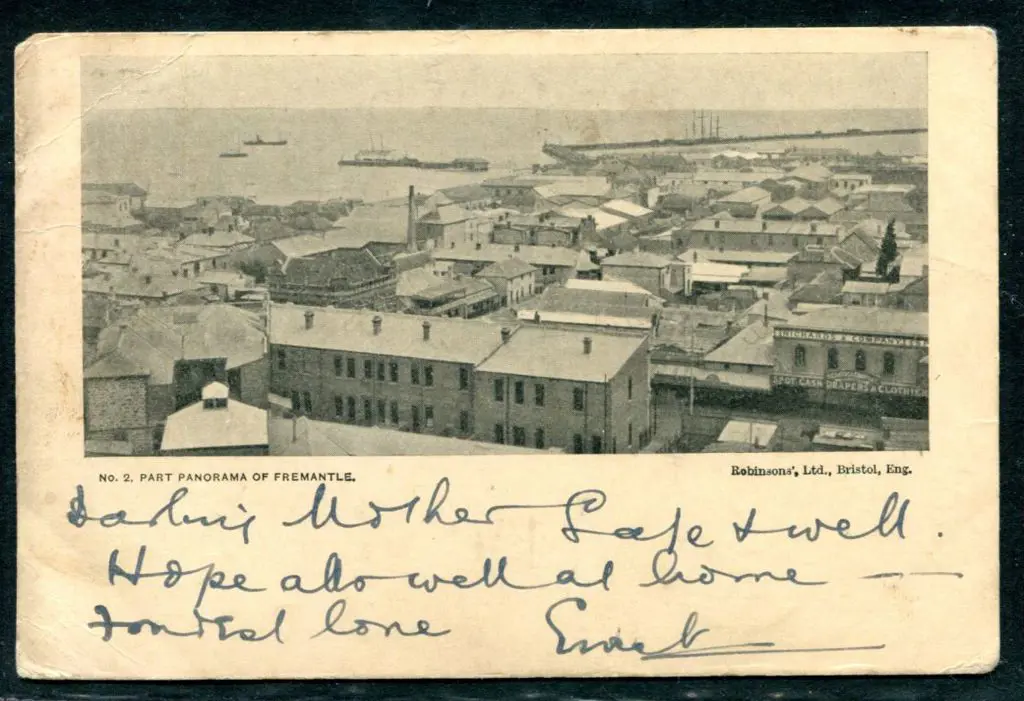 RICHARDS & COMPANY
SPOT CASH DRAPERS & CLOTHIERS
No. 2. PART PANORAMA OF FREMANTLE.
Robinsons', Ltd., Bristol, Eng.
Darling Mother Safe & well.
Hope all well at home —
Fondest love Ernest